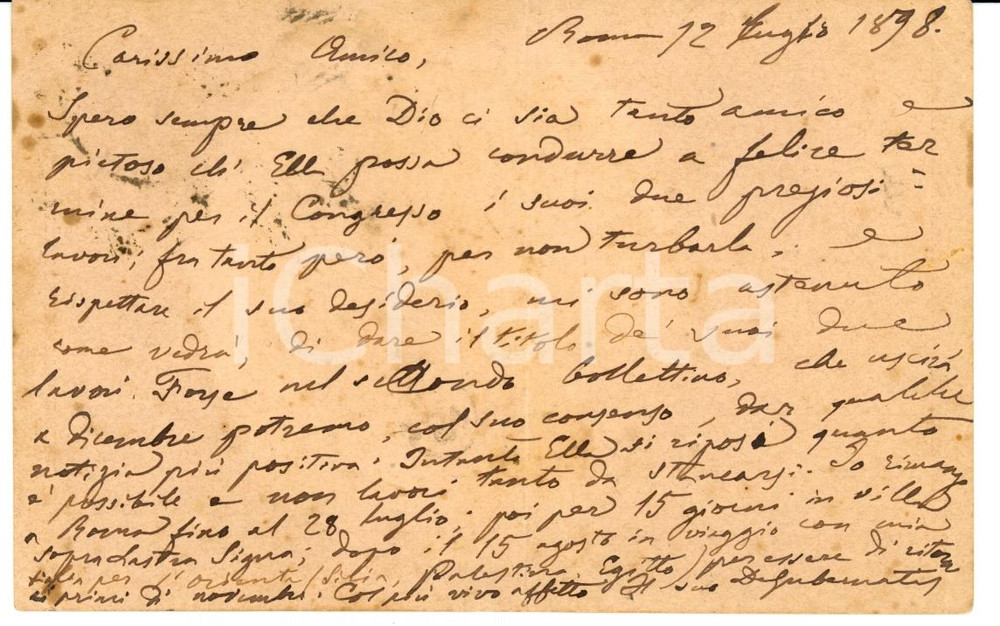 Roma 12 Luglio 1898.
Carissimo Amico,
Spero sempre che Dio ci sia tanto amico e
pietoso ch' Ella possa condurre a felice ter=
mine per il Congresso i suoi due pregiosi
lavori; fra tanto però, per non turbarla, e
rispettare il suo desiderio, mi sono astenuto
come vedrà, di dare il titolo de' suoi due
lavori. Forse nel secondo bollettino, che uscirà
a dicembre potremo, col suo consenso, dar qualche
notizia più positiva. Intanto Ella si riposi quanto
è possibile e non lavori tanto da stancarsi. Io rimango
a Roma fino al 28 luglio; poi per 15 giorni in villa
sopra Lastra Signa; dopo il 15 agosto in viaggio con mia
per l'oriente (Siria, Palestina, Egitto) per essere di ritorno
ai primi di novembre. Col più vivo affetto il suo DeGubernatis
iCharta